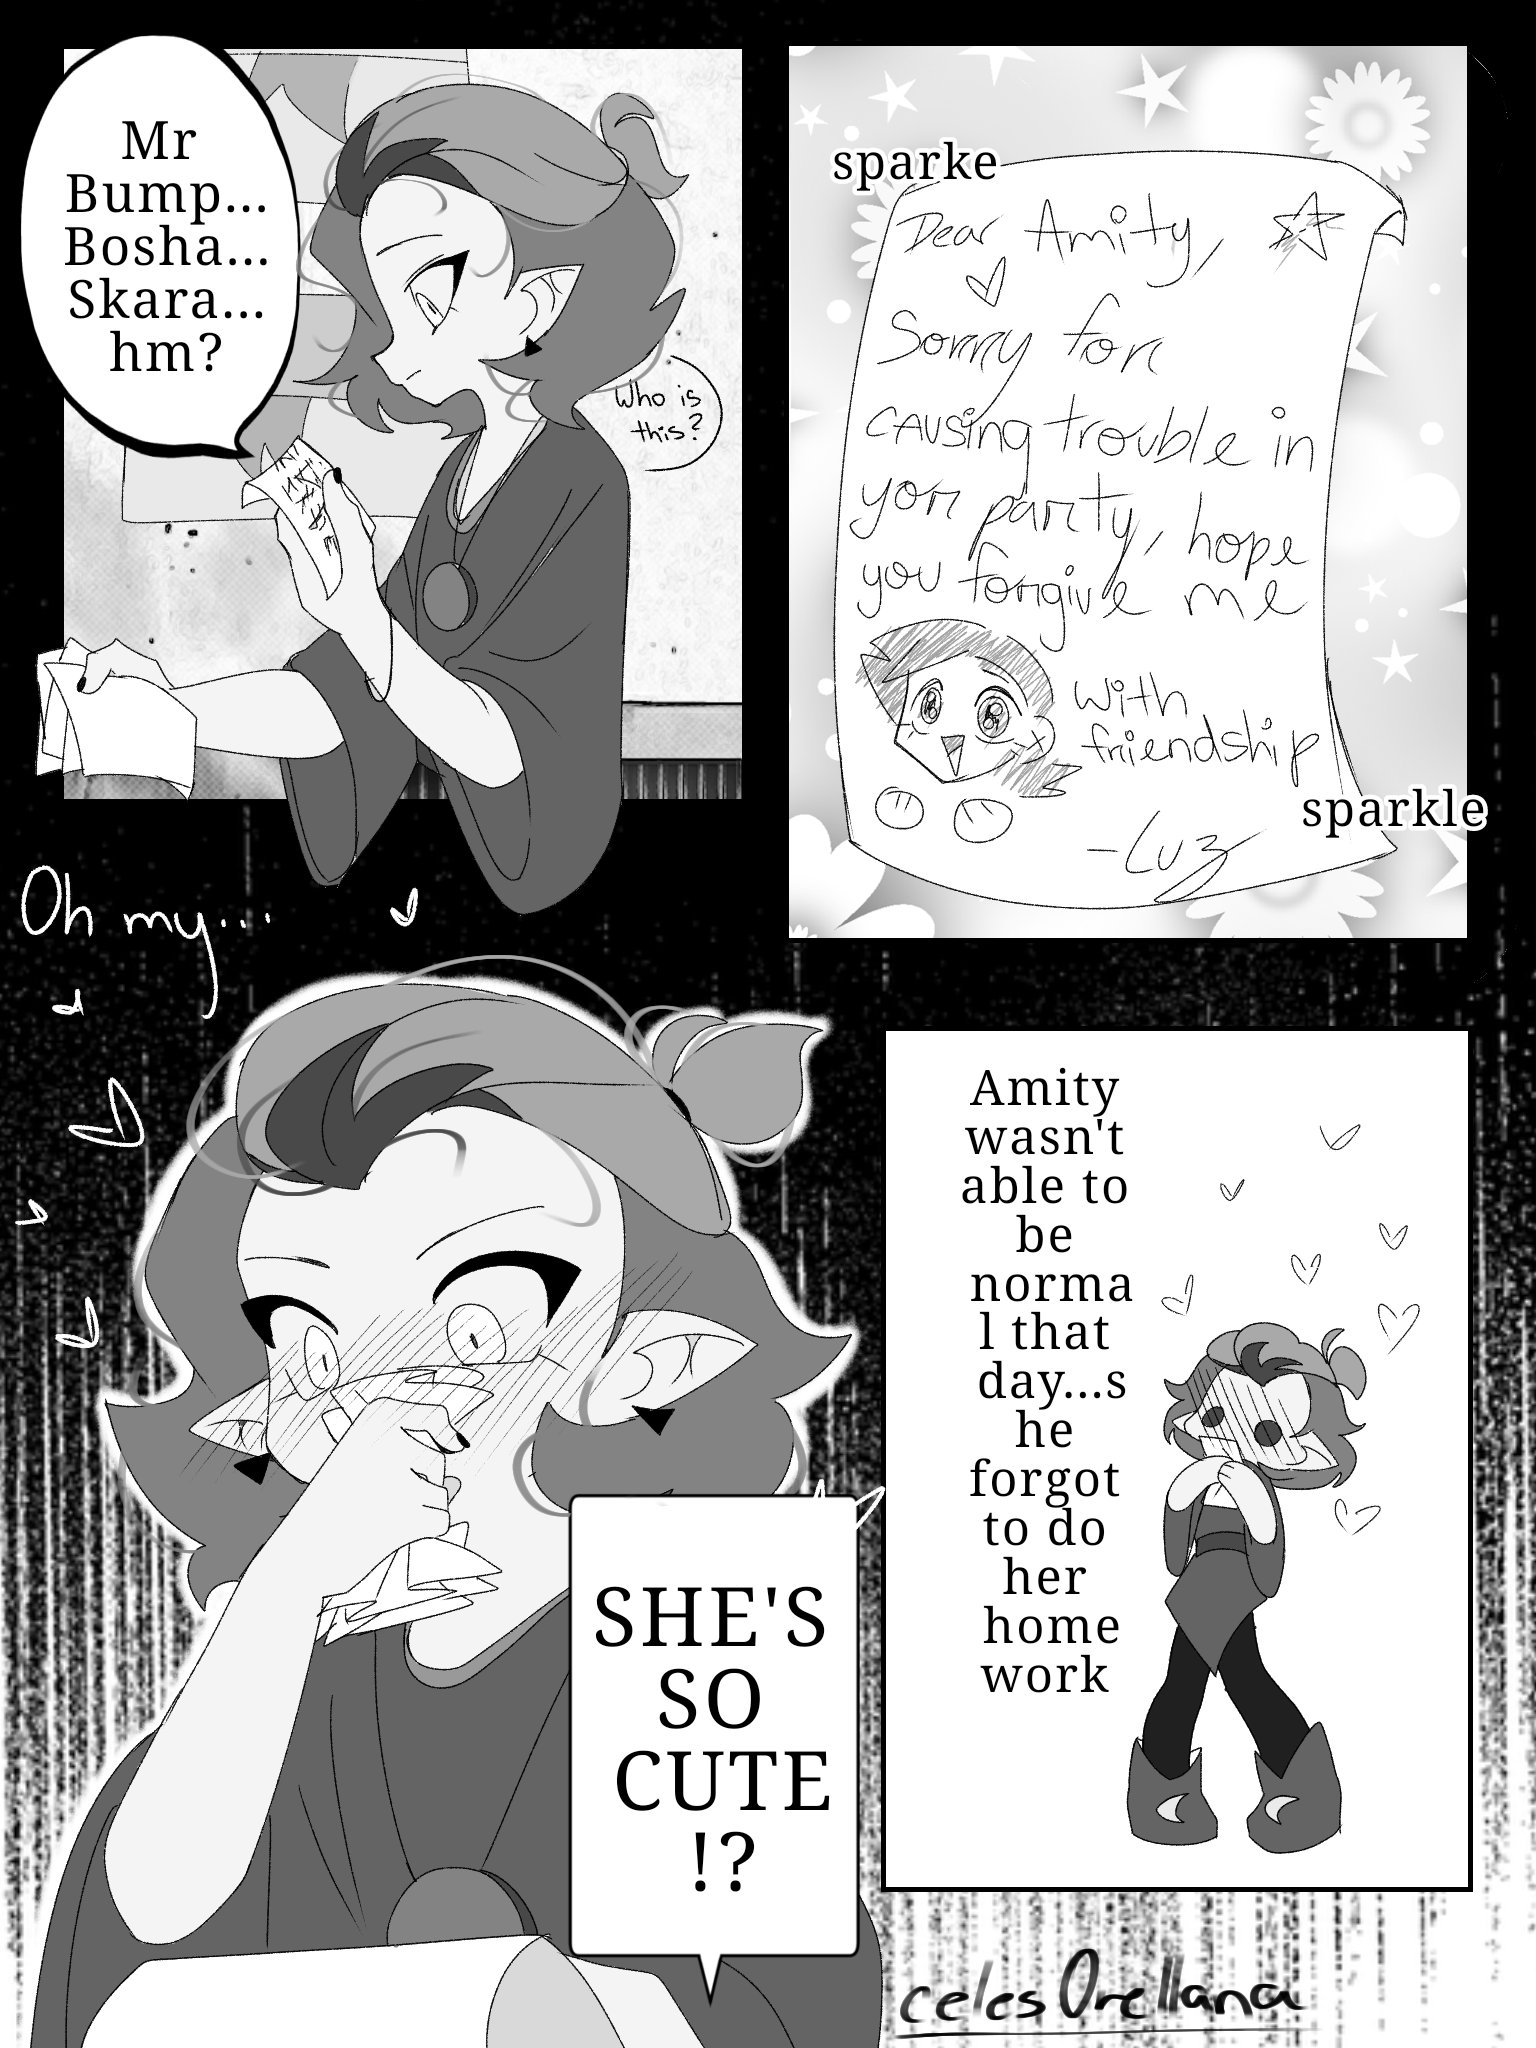 Mr
Bump...
Bosha...
Skara...
hm?
Who is
this?
sparke
Dear Amity,
Sorry for
CAUSing trouble in
yor party, hope
you forgive me
with
friendship
-Luz
sparkle
Oh my...
SHE'S
SO
CUTE
!?
Amity
wasn't
able to
be
norma
l that
day...s
he
forgot
to do
her
home
work
celes Orellana